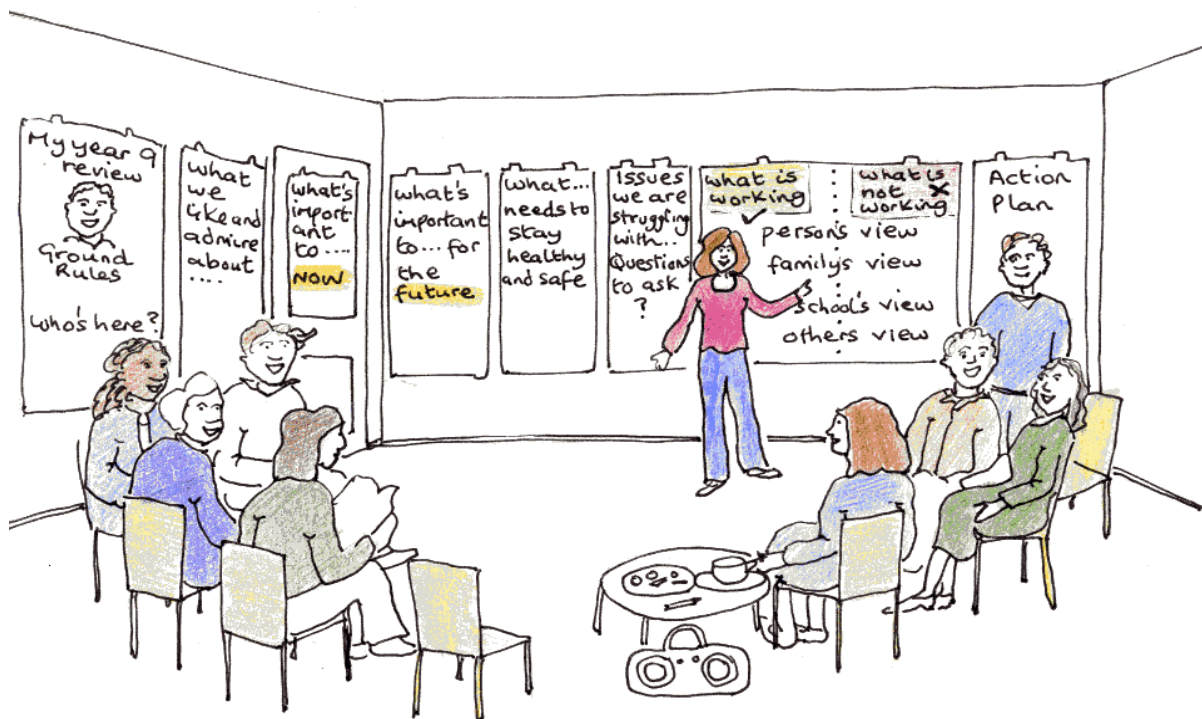 My year 9
review
Ground
Rules
Who's here?
what
we
like and
admire
about
....
what's
import
ant
to ....
NOW
what's
important
to... for
the
future
what...
needs to
stay
healthy
and safe
Issues
we are
struggling
with..
Questions
to ask
?
what is
working
what is
not
working
person's view
family's view
school's view
others view
Action
Plan